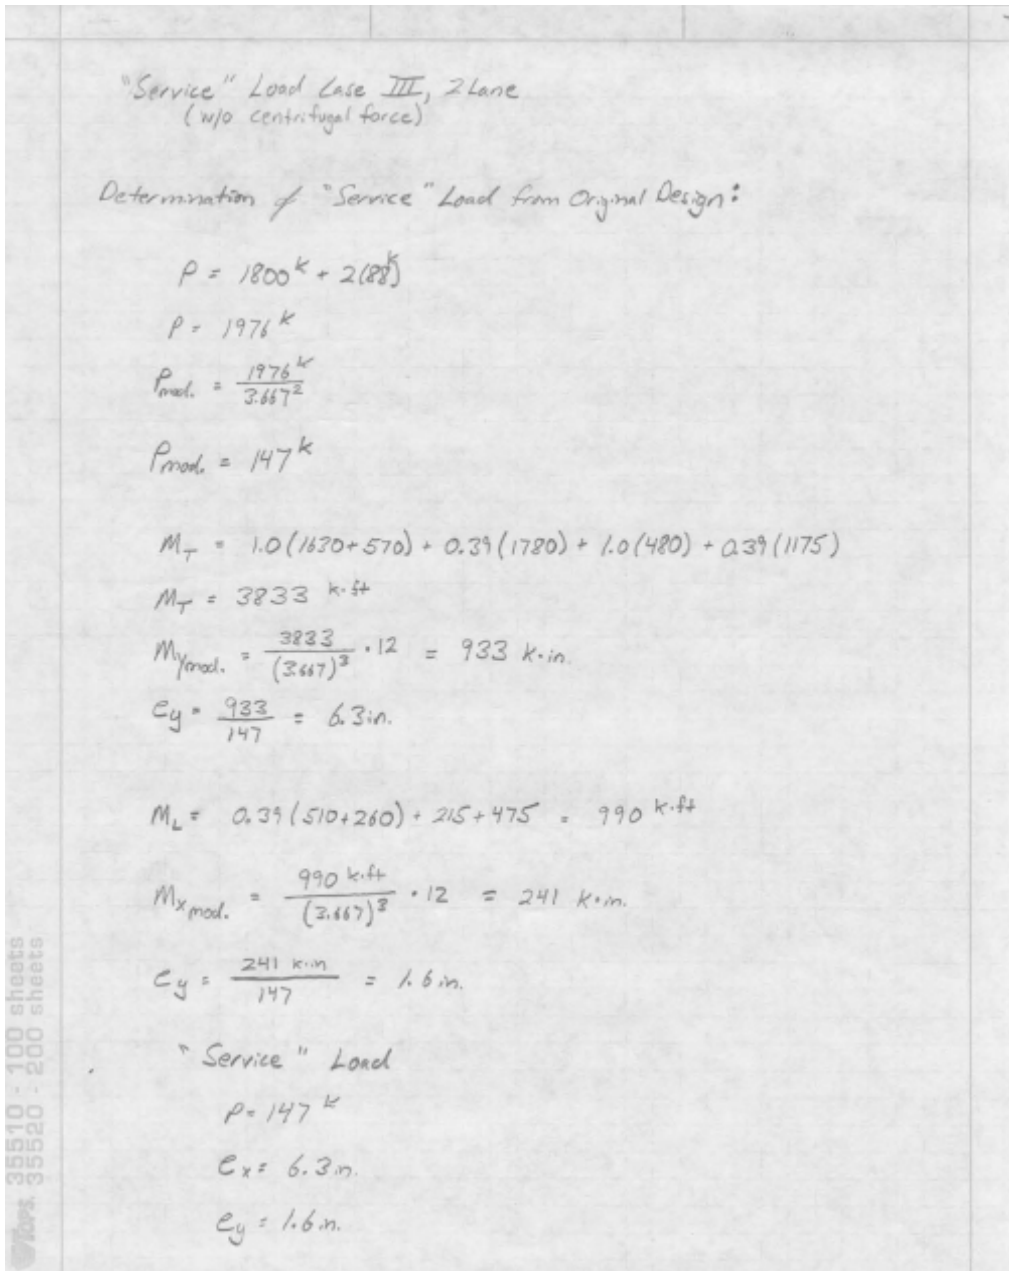 "Service" Load Case III, 2 Lane
(w/o centrifugal force)
Determination of "Service" Load from Original Design:
P = 1800ᵏ + 2(88ᵏ)
P = 1976ᵏ
Pmod. = 1976ᵏ / 3.667²
Pmod. = 147ᵏ
M_T = 1.0(1630+570) + 0.39(1780) + 1.0(480) + 0.39(1175)
M_T = 3833 k·ft
My mod. = 3833 / (3.667)³ · 12 = 933 k·in.
ey = 933 / 147 = 6.3 in.
M_L = 0.39(510+260) + 215+475 = 990 k·ft
Mx mod. = 990 k·ft / (3.667)³ · 12 = 241 k·in.
ey = 241 k·in / 147 = 1.6 in.
"Service" Load
P = 147ᵏ
ex = 6.3 in.
ey = 1.6 in.
35510 - 100 sheets
35520 - 200 sheets